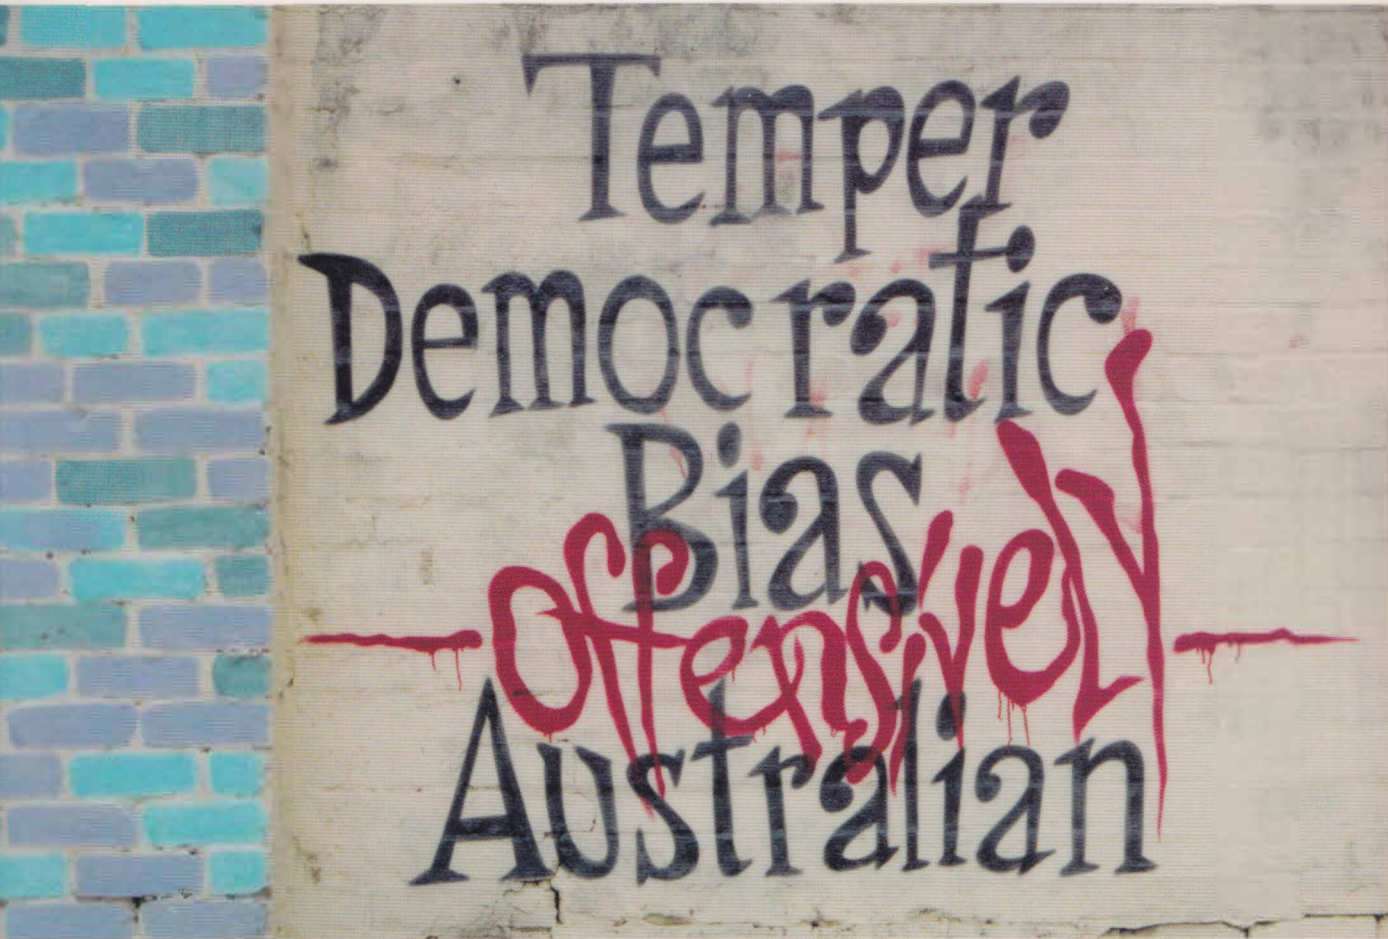 Temper
Democratic
Bias
offensively
Australian